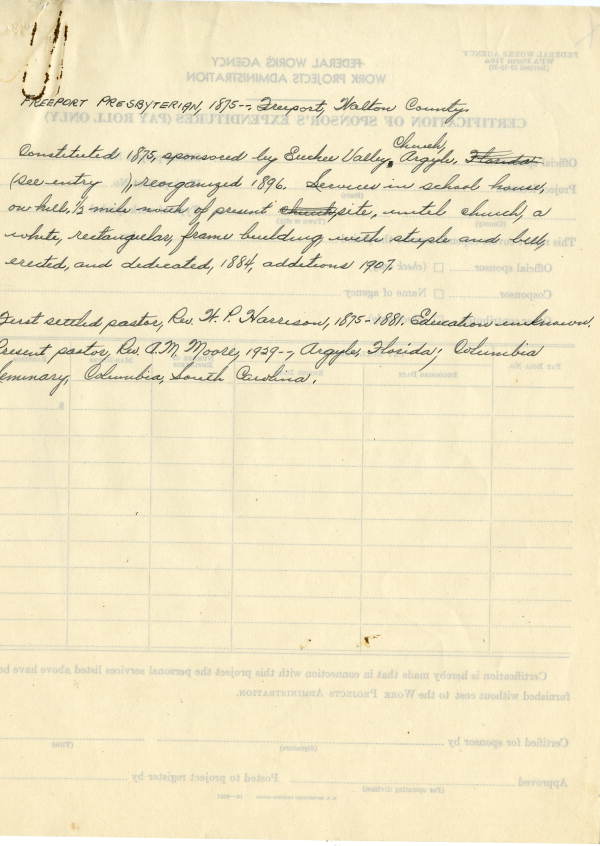 FREEPORT PRESBYTERIAN, 1875--. Freeport, Walton County
Constituted 1875, sponsored by Euchee Valley Church, Argyle, Florida
(see entry ), reorganized 1896. Services in school house,
on hill, 1/2 mile north of present church, site, until church, a
white, rectangular, frame building, with steeple and bell,
erected, and dedicated, 1884, additions 1907.
First settled pastor, Rev. H. P. Harrison, 1875-1881. Education unknown.
Present pastor, Rev. A. M. Moore, 1929--, Argyle, Florida; Columbia
Seminary, Columbia, South Carolina.
FEDERAL WORKS AGENCY
WPA Form
FEDERAL WORKS AGENCY
WORK PROJECTS ADMINISTRATION
CERTIFICATION OF SPONSOR'S EXPENDITURES (PAY ROLL ONLY)
Official sponsor
Cosponsor
Name of agency
Certification is hereby made that in connection with this project the personal services listed above have be
furnished without cost to the WORK PROJECTS ADMINISTRATION.
Certified for sponsor by
(Signature)
(Title)
Approved
(For operating division)
Posted to project register by